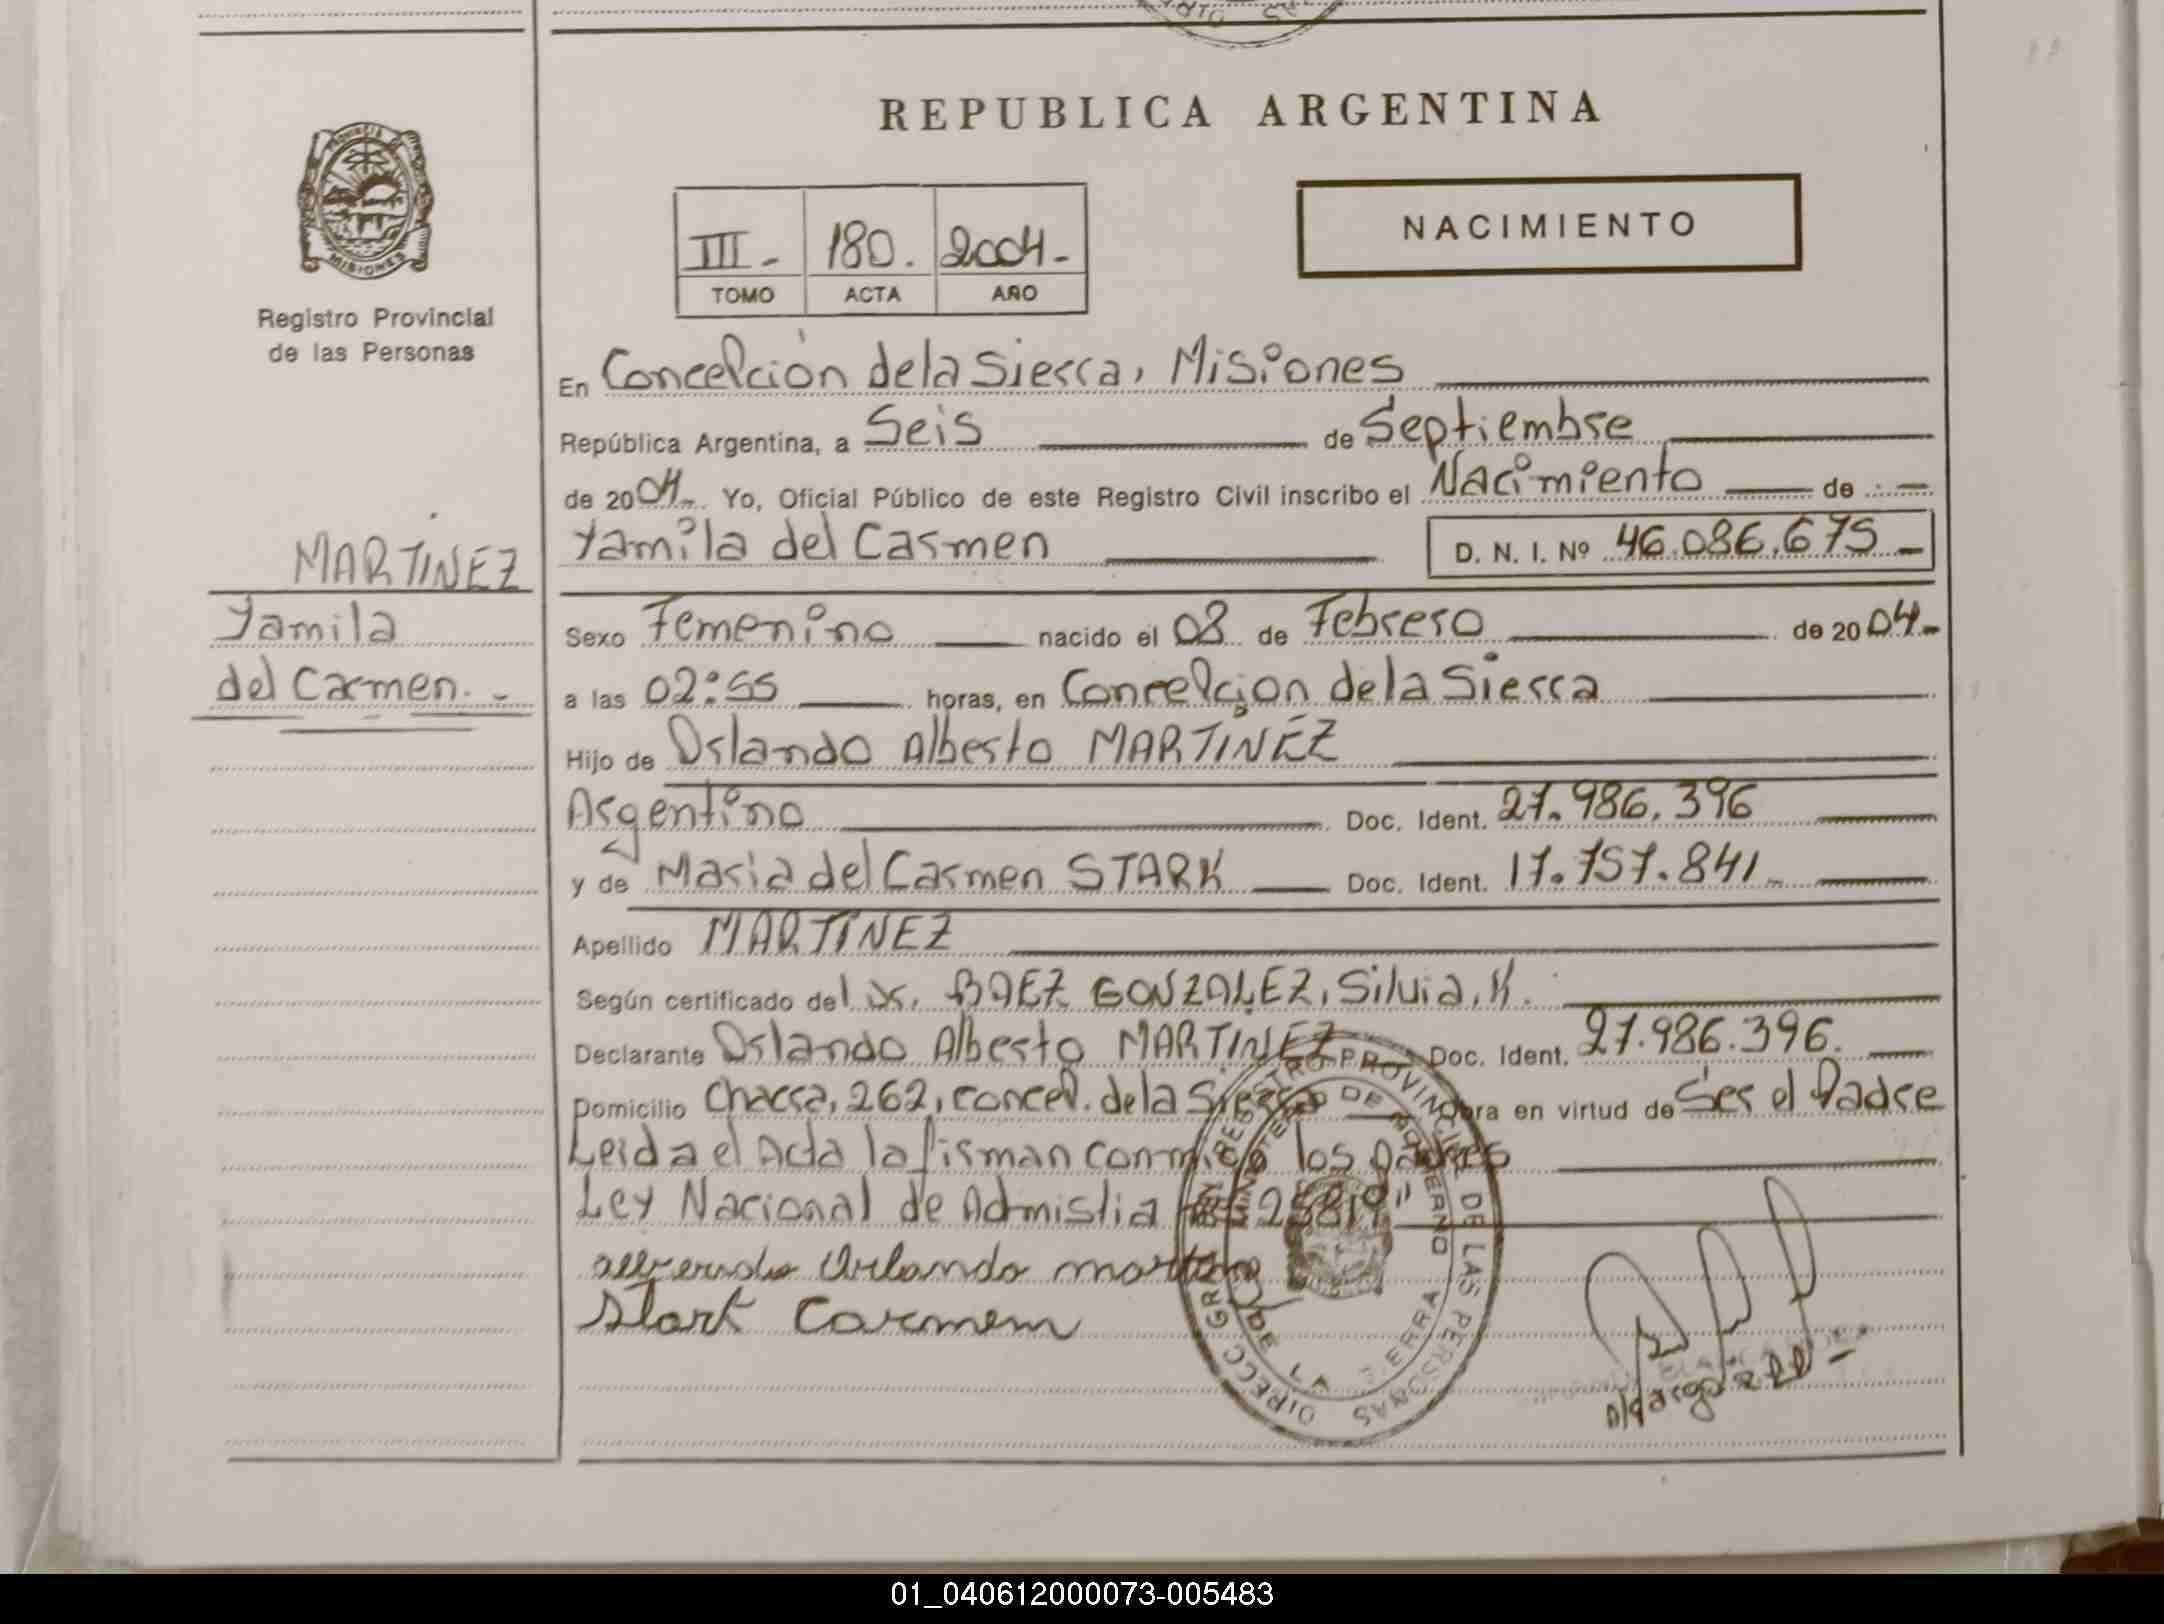 REPUBLICA ARGENTINA
PROVINCIA
MISIONES
Registro Provincial
de las Personas
NACIMIENTO
III - 180. 2004-
TOMO ACTA AÑO
En Concepción de la Sierra, Misiones
República Argentina, a Seis de Septiembre
de 2004- Yo, Oficial Público de este Registro Civil inscribo el Nacimiento de
Yamila del Carmen D. N. I. Nº 46.086.675 -
MARTINEZ
Yamila
del Carmen. -
Sexo Femenino nacido el 08 de Febrero de 2004-
a las 02:55 horas, en Concepcion de la Sierra
Hijo de Orlando Alberto MARTINEZ
Argentino Doc. Ident. 27.986.396
y de Maria del Carmen STARK Doc. Ident. 17.757.841-
Apellido MARTINEZ
Según certificado del Dr. BAEZ GONZALEZ, Silvia, K.
Declarante Orlando Alberto MARTINEZ Doc. Ident. 27.986.396.
Domicilio Chacra, 262, Concep. de la Sierra Obra en virtud de Ser el Padre
Leida el Acta la firman conmigo los padres
Ley Nacional de Admistia 25819"
Orlando
Stark Carmem
DIRECC GRAL REGISTRO PROVINCIAL DE LAS PERSONAS
MINISTERIO DE GOBIERNO
DE LA SIERRA
01_040612000073-005483